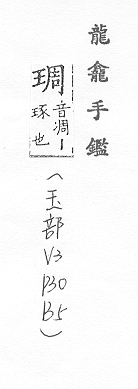 龍龕手鑑
琱音凋丨
琢也
(玉部 V3 P30 B5)